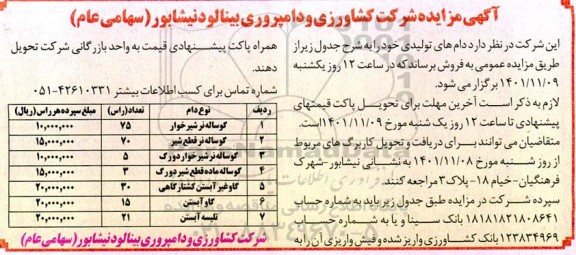 آگهی مزایده شرکت کشاورزی و دامپروری بینالود نیشابور (سهامی عام)
این شرکت در نظر دارد دام های تولیدی خود را به شرح جدول زیر از
طریق مزایده عمومی به فروش برساند که در ساعت ۱۲ روز یکشنبه
۱۴۰۱/۱۱/۰۹ برگزار می شود.
لازم به ذکر است آخرین مهلت برای تحویل پاکت قیمتهای
پیشنهادی تا ساعت ۱۲ روز یک شنبه مورخ ۱۴۰۱/۱۱/۰۹ است.
متقاضیان می توانند برای دریافت و تحویل کاربرگ های مربوط
از روز شنبه مورخ ۱۴۰۱/۱۱/۰۸ به نشانی نیشابور-شهرک
فرهنگیان-خیام ۱۸- پلاک ۳ مراجعه کنند.
سپرده شرکت در مزایده طبق جدول زیر باید به شماره حساب
۱۸۱۸۱۸۲۱۸۰۸۶۴۱ بانک سینا و یا به شماره حساب
۱۲۳۸۳۴۹۶۹ بانک کشاورزی واریز شده و فیش واریزی آن را به
همراه پاکت پیشنهادی قیمت به واحد بازرگانی شرکت تحویل
دهند.
شماره تماس برای کسب اطلاعات بیشتر ۴۲۶۱۰۳۳۱-۰۵۱
ردیف نوع دام تعداد(راس) مبلغ سپرده هر راس (ریال)
۱ گوساله نر شیرخوار ۷۵ ۱۰,۰۰۰,۰۰۰
۲ گوساله نر قطع شیر ۷۰ ۱۵,۰۰۰,۰۰۰
۳ گوساله نر شیرخوار دورگ ۵ ۱۰,۰۰۰,۰۰۰
۴ گوساله ماده قطع شیر دورگ ۳ ۱۵,۰۰۰,۰۰۰
۵ گاو غیر آبستن کشتارگاهی ۳۰ ۲۰,۰۰۰,۰۰۰
۶ گاو آبستن ۱۵ ۲۰,۰۰۰,۰۰۰
۷ تلیسه آبستن ۲۱ ۲۰,۰۰۰,۰۰۰
شرکت کشاورزی و دامپروری بینالود نیشابور (سهامی عام)